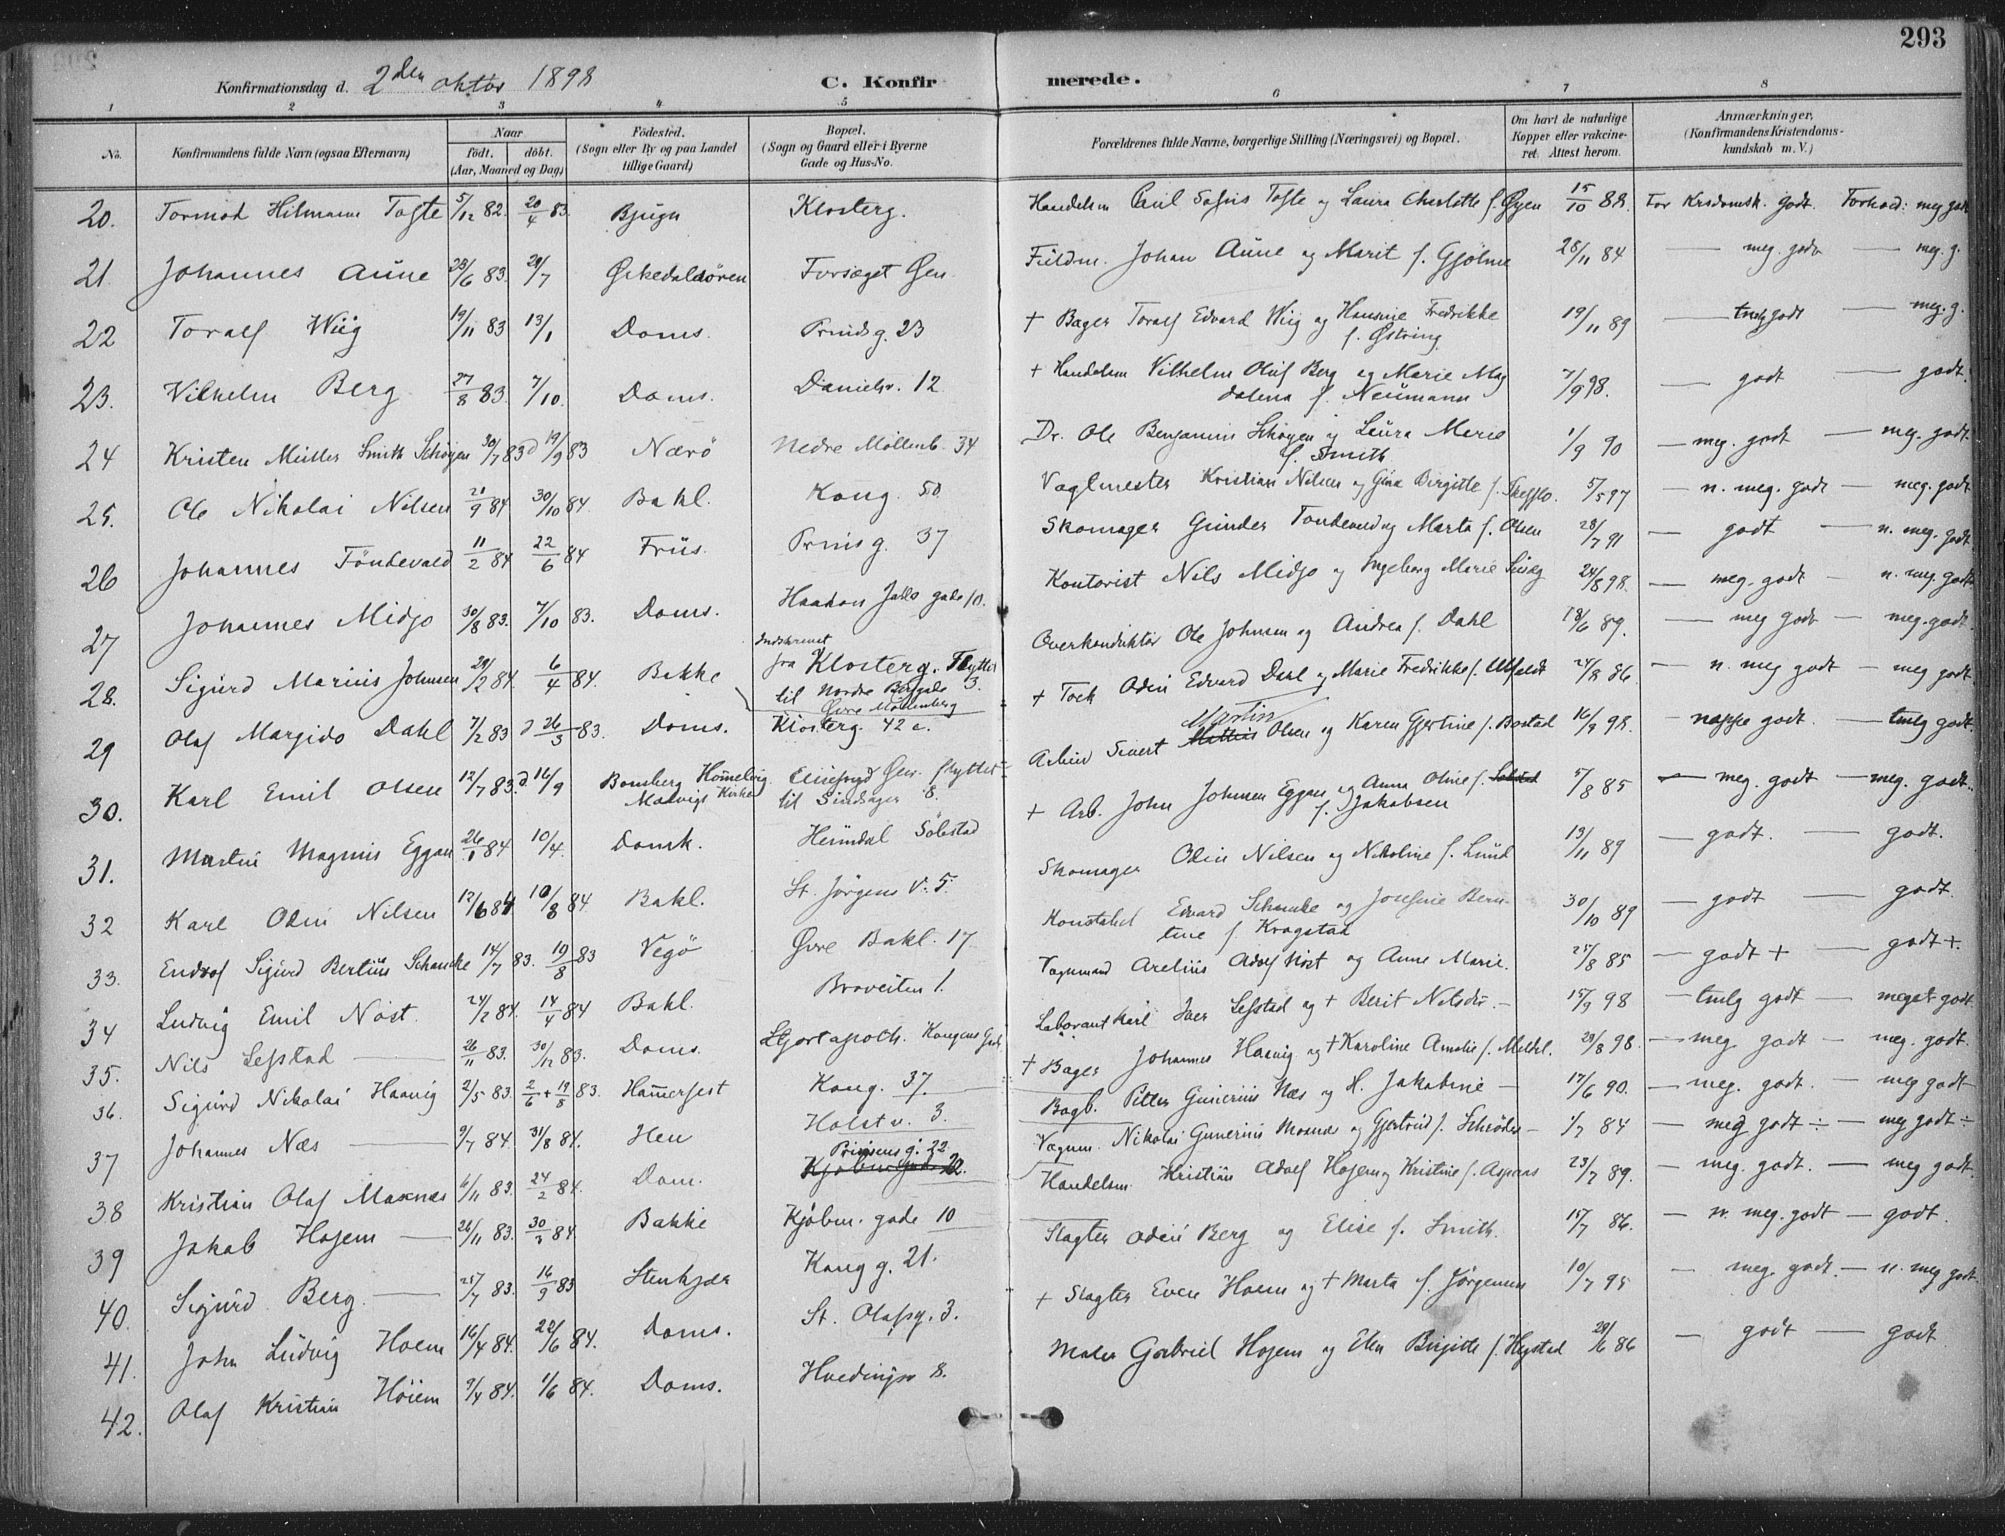 293
Konfirmationsdag d. 2den oktbr 1898 C. Konfirmerede.
1 2 3 4 5 6 7 8
No. Konfirmandens fulde Navn (ogsaa Efternavn) Naar født. døbt. (Aar, Maaned og Dag) Fødested. (Sogn eller By og paa Landet tillige Gaard) Bopæl. (Sogn og Gaard eller i Byerne Gade og Hus-No. Forældrenes fulde Navne, borgerlige Stilling (Næringsvei) og Bopæl. Om havt de naturlige Kopper eller vakcineret. Attest herom. Anmærkninger, (Konfirmandens Kristendomskundskab m. V.)
20. Tormod Hilmann Tofte 5/12 82. 20/4 83. Bjugn Klosterg. Handelsm Paul Sofus Tofte og Laura Charlotte f. Øyen 15/10 88. For Krsdomsk. godt. Forhold: meg godt
21 Johannes Aune 23/6 83. 29/7 Ørkedalsøren Forsøget Øen Fieldm. Johan Aune og Marit f. Gjølme 28/11 84 — meg. godt — meg. g.
22 Toralf Wiig 19/11 83 13/1 Doms. Prinds g. 23 + Bager Toralf Edvard Wiig og Hansine Fredrikke f. Østring 19/11 89 — godt — meg. g.
23. Vilhelm Berg 27/8 83. 7/10. Doms. Danielsv. 12 + Handelsm Vilhelm Oluf Berg og Marie Magdalena f. Neumann 7/9 98. — godt — godt.
24 Kristen Müller Smith Schøyen 30/7 83 d 19/9 83 Nærö Nedre Møllenb. 34 Dr. Ole Benjamin Schøyen og Laura Marie f. Smith 1/9 90 — meg. godt — meg. godt.
25. Ole Nikolai Nilsen 21/9 84 30/10 84. Bakl. Kong. 50. Vagtmester Kristian Nilsen og Gina Birgitte f. 5/5 97 — n. meg. godt — meg. godt
26 Johannes Töndevold 11/2 84 22/6 84 Friis. Prins g. 37 Skomager Gunder Tondevold og Marta f. Olsen 28/7 91 — godt — n. meg. godt
27 Johannes Midjo 30/8 83. 7/10 83. Doms. Haakon Jarls gade 10. Kontorist Nils Midjo og Ingeborg Marie 24/8 98. — meg. godt — n. meg. godt
28. Sigurd Marius Johnsen 29/2 84 6/4 84. Bakke Indskrevet fra Klosterg. Flyttet til Nordre Berggade 3. Øvre Møllenberg Overkonduktør Ole Johnsen og Andrea f. Dahl 18/6 89. — meg godt — meg. godt.
29 Olaf Margido Dahl 7/2 83 d 26/3 83. Doms. Klosterg. 42 c. + Tock Odin Edvard Dahl og Marie Fredrikke f. 24/8 86. — n. meg godt — meg godt.
30. Karl Emil Olsen 12/7 83. d. 16/9 Bomberg Hommelvig Malvigs Kirke Elisefryd Øen. flyttet til 8. Arbeid Sivert Mathias Martin Olsen og Karen Gjertine f. Bostad 16/9 98. — neppe godt. — tmlg godt
31. Martin Magnus Eggan 26/1 84 10/4. Domk. Heimdal Sølestad + Arb. John Johnsen Eggan og Anna Oline f. f. Jakobsen 5/8 85 — meg. godt — meg. godt.
32 Karl Odin Nilsen 12/6 84 10/8 84 Bakl. St. Jørgens v. 5. Skomager Odin Nilsen og Nikoline f. Lund 13/11 89 — godt. — godt.
33. Endrof Sigurd Bertius Schancke 14/7 83. 19/8 83 Vegö Øvre Bakl. 17. Konstabel Edvard Schancke og Josefine Berntine f. Krogstad 30/10 89 — godt — godt.
34 Ludvig Emil Nöst. 24/2 84. 14/4 84 Bakl. Braveiten 1. Vognmand Arelius Adolf Nöst og Anne Marie. 25/8 85 — godt + — godt +.
35. Nils Lefstad — 26/11 83. 30/12 83. Doms. Hjortapoth. Kongens Gade Laborant karl Iver Lefstad og + Berit Nilsdr. — 15/9 98 — tmlg godt — meget godt.
36. Sigurd Nikolai Haavig 2/5 83. 2/6 + 19/8 83. Hammerfest Kong. 37. + Bager Johannes Haavig og + Karoline Amalie f. 28/8 98. — meg godt — meg. godt.
37 Johannes Næs — 9/7 84. 31/8 84. Hen Holst v. 3. Bogb. Petter Gunerius Næs og H. Jakobine — 17/6 90. — meg. godt. — meg godt
38 Kristian Olaf Mosnæs 6/11 83. 24/2 84. Dom. Prinsens g. 22 Kjøbm. gade 22. Vognm. Nikolai Gunerius Mosnæs og Gjertrud f. Schrøder — 1/7 84 — meg godt ÷ — meg godt ÷
39 Jakob Hojem — 26/11 83. 30/3 84. Bakke Kjøbm. gade 10 Handelsm Kristian Adolf Hojem og Kristine f. Aspaas 23/7 89. — meg. godt. — meg godt.
40. Sigurd Berg. — 25/7 83. 16/9 83 Stenkjær Kong g. 21. Slagter Odin Berg og Elise f. Smith. 15/7 86. — n. meg. godt — godt.
41. John Ludvig Hoem 16/4 84. 22/6 84. Doms. St. Olafsg. 3. + Slagter Even Hoem og + Marta f. Jørgensen 10/7 95 — meg. godt. — n. meg godt
42. Olaf Kristian Höiem 9/4 84. 1/6 84. Doms. Hvedingsv 8. Maler Gabriel Hojem og Elen Birgitte f. Hegstad 29/6 86 — godt — godt